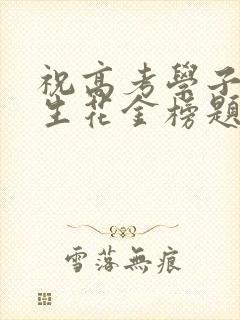 祝高考學子
生花金榜題
雪落無痕